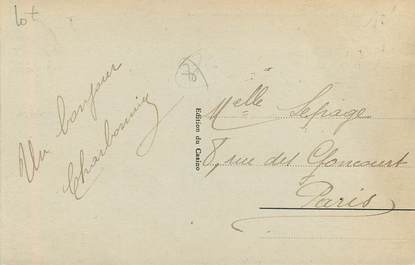 Lot
Un bonjour
Charbonnier
Edition du Casino
Melle Lepage
8, rue des Goncourt
Paris